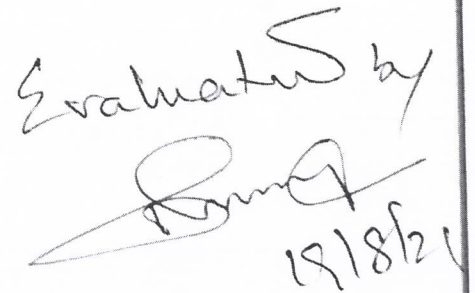 Evaluated by
18/8/21